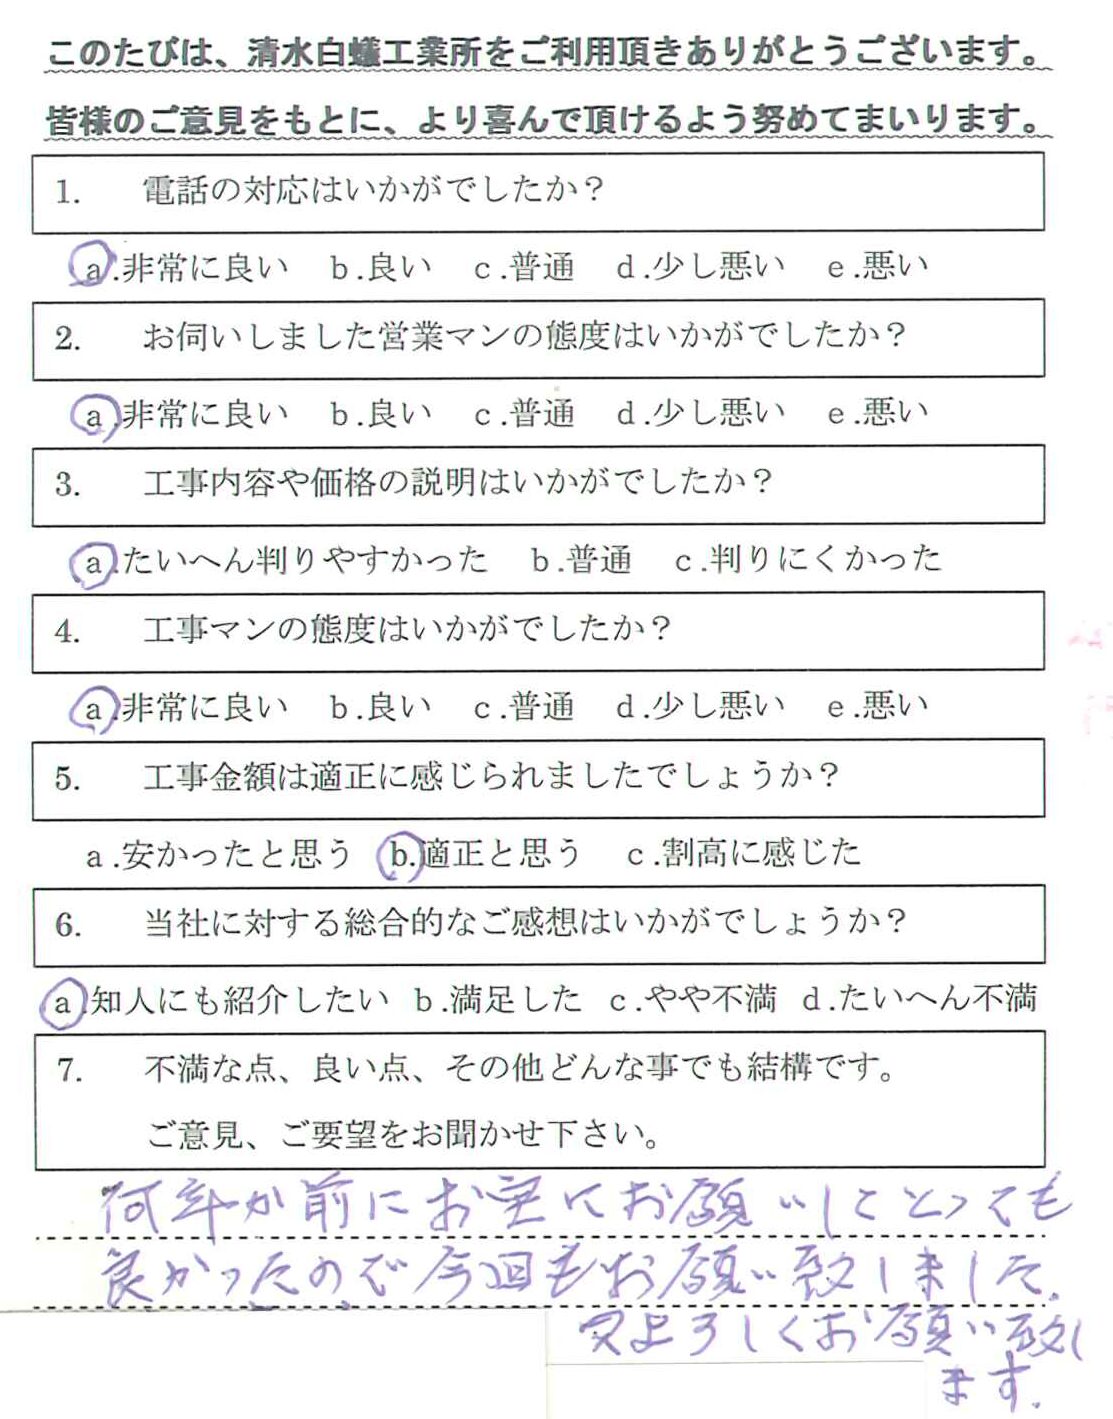 このたびは、清水白蟻工業所をご利用頂きありがとうございます。
皆様のご意見をもとに、より喜んで頂けるよう努めてまいります。
1. 電話の対応はいかがでしたか？
a.非常に良い b.良い c.普通 d.少し悪い e.悪い
2. お伺いしました営業マンの態度はいかがでしたか？
a.非常に良い b.良い c.普通 d.少し悪い e.悪い
3. 工事内容や価格の説明はいかがでしたか？
a.たいへん判りやすかった b.普通 c.判りにくかった
4. 工事マンの態度はいかがでしたか？
a.非常に良い b.良い c.普通 d.少し悪い e.悪い
5. 工事金額は適正に感じられましたでしょうか？
a.安かったと思う b.適正と思う c.割高に感じた
6. 当社に対する総合的なご感想はいかがでしょうか？
a.知人にも紹介したい b.満足した c.やや不満 d.たいへん不満
7. 不満な点、良い点、その他どんな事でも結構です。
ご意見、ご要望をお聞かせ下さい。
何年か前にお宅にお願いしてとっても
良かったので今回もお願い致しました。
又よろしくお願い致し
ます。